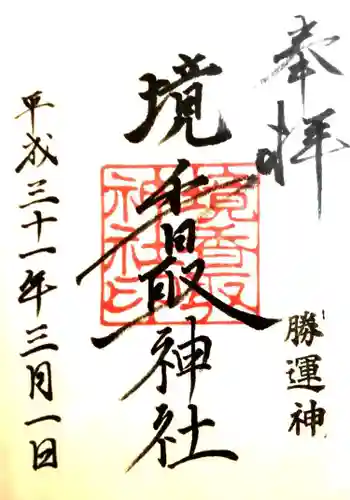 奉拝
勝運神
境香取神社
境香取神社印
平成三十一年三月一日